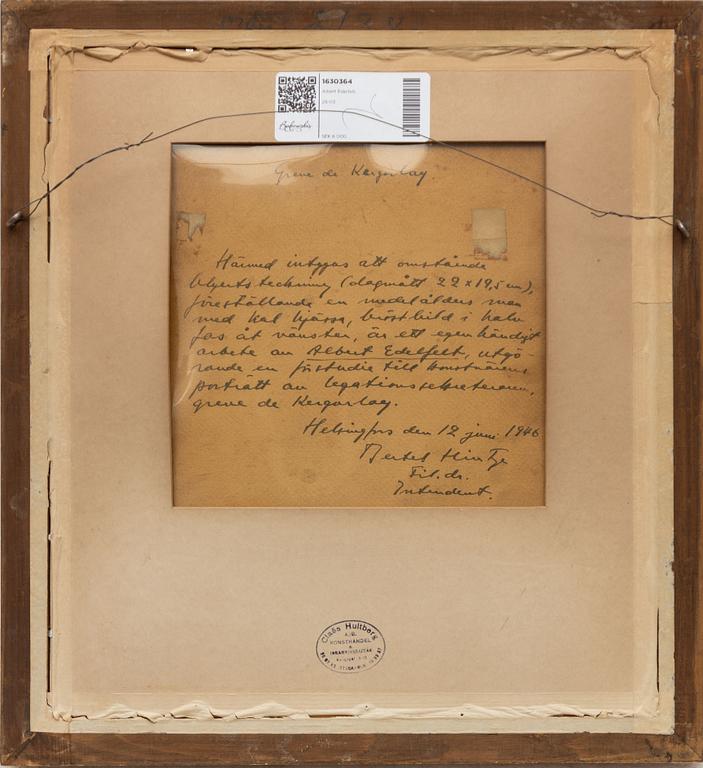 1630364
Albert Edelfelt
Bukowskis
SEK 8 000
Greve de Kergorlay.
Härmed intygas att omstående
blyertsteckning (dagmått 22 x 19,5 cm),
föreställande en medelålders man
med kal hjässa, bröstbild i halv
fas åt vänster, är ett egenhändigt
arbete av Albert Edelfelt, utgö-
rande en förstudie till konstnärens
porträtt av legationssekreteraren,
greve de Kergorlay.
Helsingfors den 12 juni 1946
Bertel Hintze
Fil. dr.
Intendent.
Claës Hultberg
A.-B.
KONSTHANDEL
&
INRAMNINGSATELJÉ